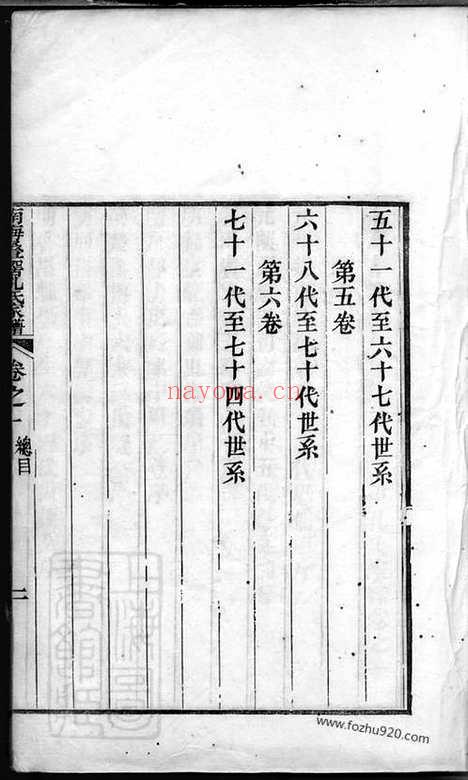 五十一代至六十七代世系
第五卷
六十八代至七十代世系
第六卷
七十一代至七十四代世系
孔氏家譜
卷之一
總目
二
nayona.cn
www.fozhu920.com